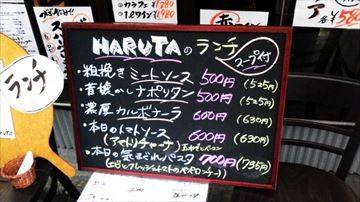 HARUTAのランチ
スープ付
・粗挽きミートソース 500円 (525円)
・昔懐かしナポリタン 500円 (525円)
・濃厚カルボナーラ 600円 (630円)
・本日のトマトソース 600円 (630円)
(アマトリチャーナ)玉ねぎとベーコン
・本日の気まぐれパスタ 700円 (735円)
(エビとフレッシュトマトのペペロンチーノ)
ランチ
カラフェ ¥1280
¥1980